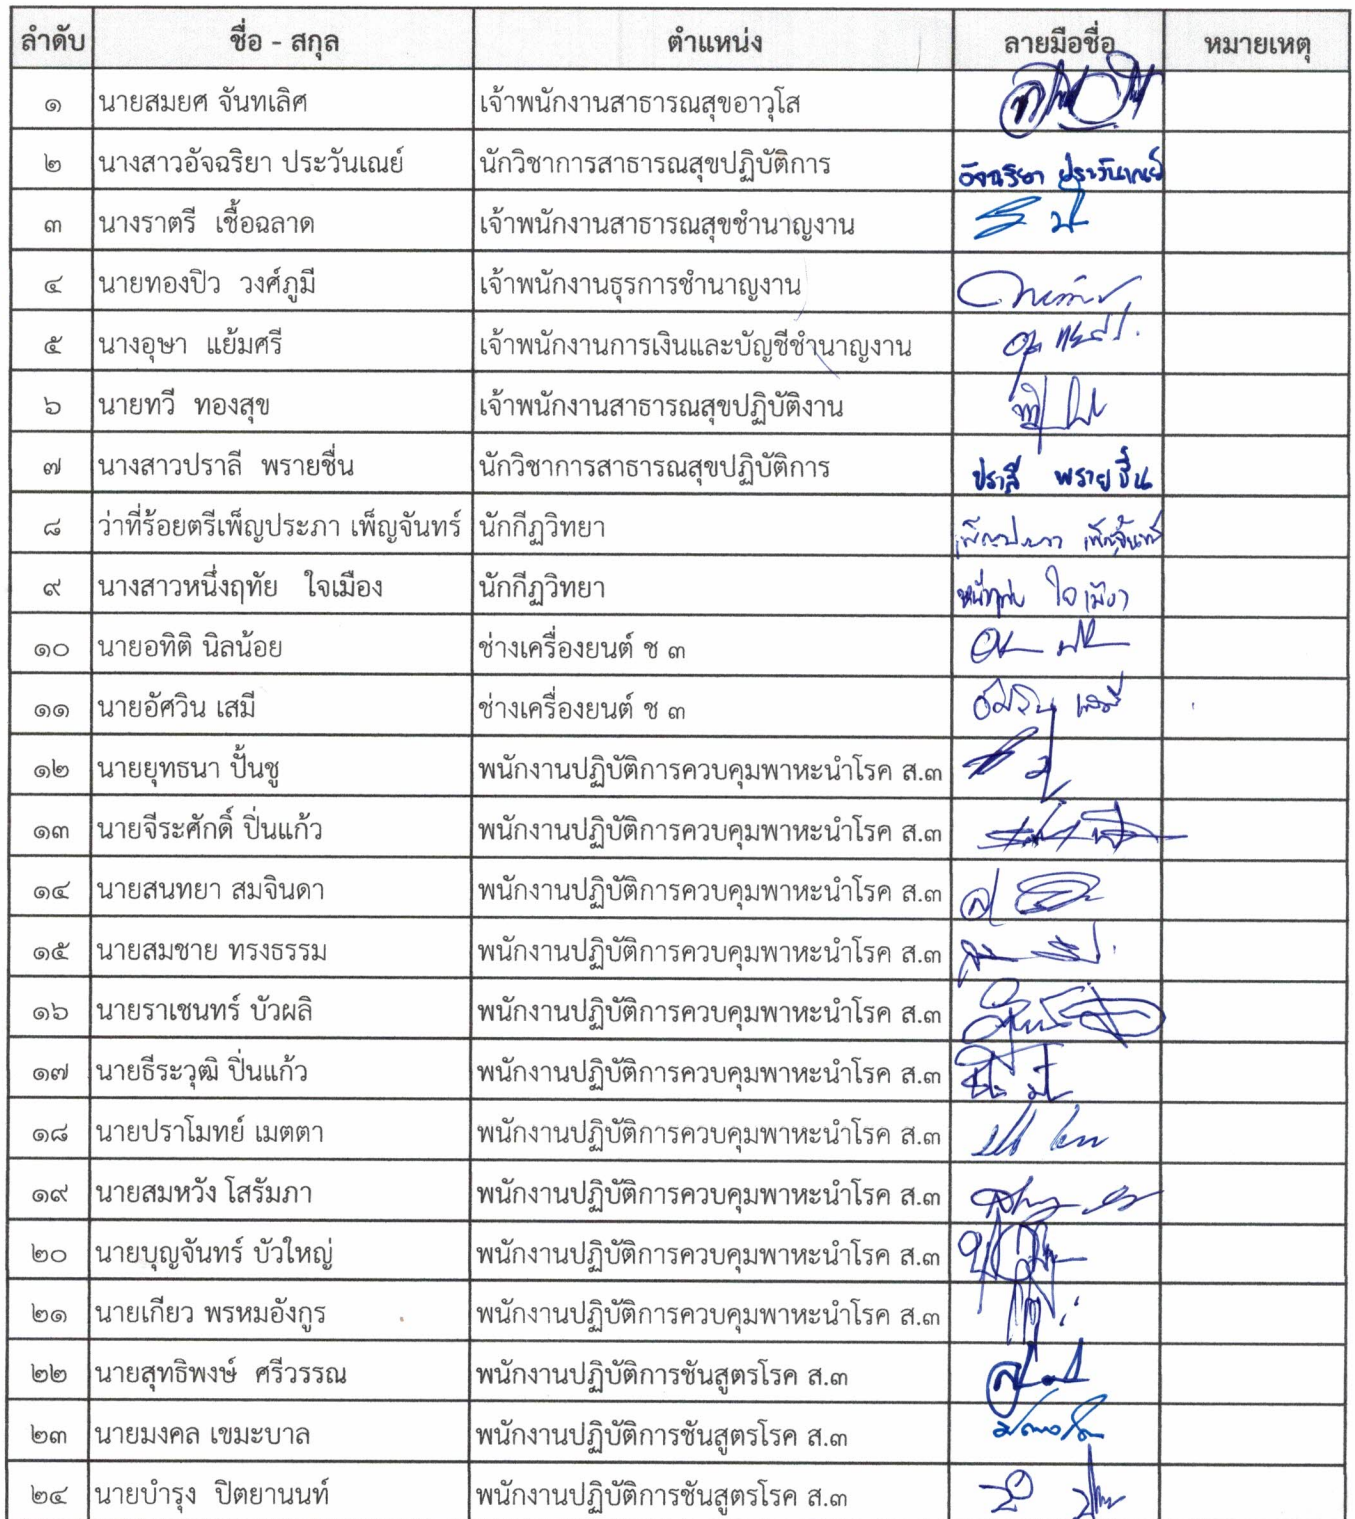 ลำดับ ชื่อ - สกุล ตำแหน่ง ลายมือชื่อ หมายเหตุ
๑ นายสมยศ จันทเลิศ เจ้าพนักงานสาธารณสุขอาวุโส
๒ นางสาวอัจฉริยา ประวันเณย์ นักวิชาการสาธารณสุขปฏิบัติการ อัจฉริยา ประวันเณย์
๓ นางราตรี เชื้อฉลาด เจ้าพนักงานสาธารณสุขชำนาญงาน
๔ นายทองปิว วงศ์ภูมี เจ้าพนักงานธุรการชำนาญงาน
๕ นางอุษา แย้มศรี เจ้าพนักงานการเงินและบัญชีชำนาญงาน
๖ นายทวี ทองสุข เจ้าพนักงานสาธารณสุขปฏิบัติงาน
๗ นางสาวปราลี พรายชื่น นักวิชาการสาธารณสุขปฏิบัติการ ปราลี พรายชื่น
๘ ว่าที่ร้อยตรีเพ็ญประภา เพ็ญจันทร์ นักกีฏวิทยา เพ็ญประภา เพ็ญจันทร์
๙ นางสาวหนึ่งฤทัย ใจเมือง นักกีฏวิทยา หนึ่งฤทัย ใจเมือง
๑๐ นายอทิติ นิลน้อย ช่างเครื่องยนต์ ช ๓
๑๑ นายอัศวิน เสมี ช่างเครื่องยนต์ ช ๓ อัศวิน เสมี
๑๒ นายยุทธนา ปั้นชู พนักงานปฏิบัติการควบคุมพาหะนำโรค ส.๓
๑๓ นายจีระศักดิ์ ปิ่นแก้ว พนักงานปฏิบัติการควบคุมพาหะนำโรค ส.๓
๑๔ นายสนทยา สมจินดา พนักงานปฏิบัติการควบคุมพาหะนำโรค ส.๓
๑๕ นายสมชาย ทรงธรรม พนักงานปฏิบัติการควบคุมพาหะนำโรค ส.๓
๑๖ นายราเชนทร์ บัวผลิ พนักงานปฏิบัติการควบคุมพาหะนำโรค ส.๓
๑๗ นายธีระวุฒิ ปิ่นแก้ว พนักงานปฏิบัติการควบคุมพาหะนำโรค ส.๓
๑๘ นายปราโมทย์ เมตตา พนักงานปฏิบัติการควบคุมพาหะนำโรค ส.๓
๑๙ นายสมหวัง โสรัมภา พนักงานปฏิบัติการควบคุมพาหะนำโรค ส.๓
๒๐ นายบุญจันทร์ บัวใหญ่ พนักงานปฏิบัติการควบคุมพาหะนำโรค ส.๓
๒๑ นายเกียว พรหมอังกูร พนักงานปฏิบัติการควบคุมพาหะนำโรค ส.๓
๒๒ นายสุทธิพงษ์ ศรีวรรณ พนักงานปฏิบัติการชันสูตรโรค ส.๓
๒๓ นายมงคล เขมะบาล พนักงานปฏิบัติการชันสูตรโรค ส.๓
๒๔ นายบำรุง ปิตยานนท์ พนักงานปฏิบัติการชันสูตรโรค ส.๓